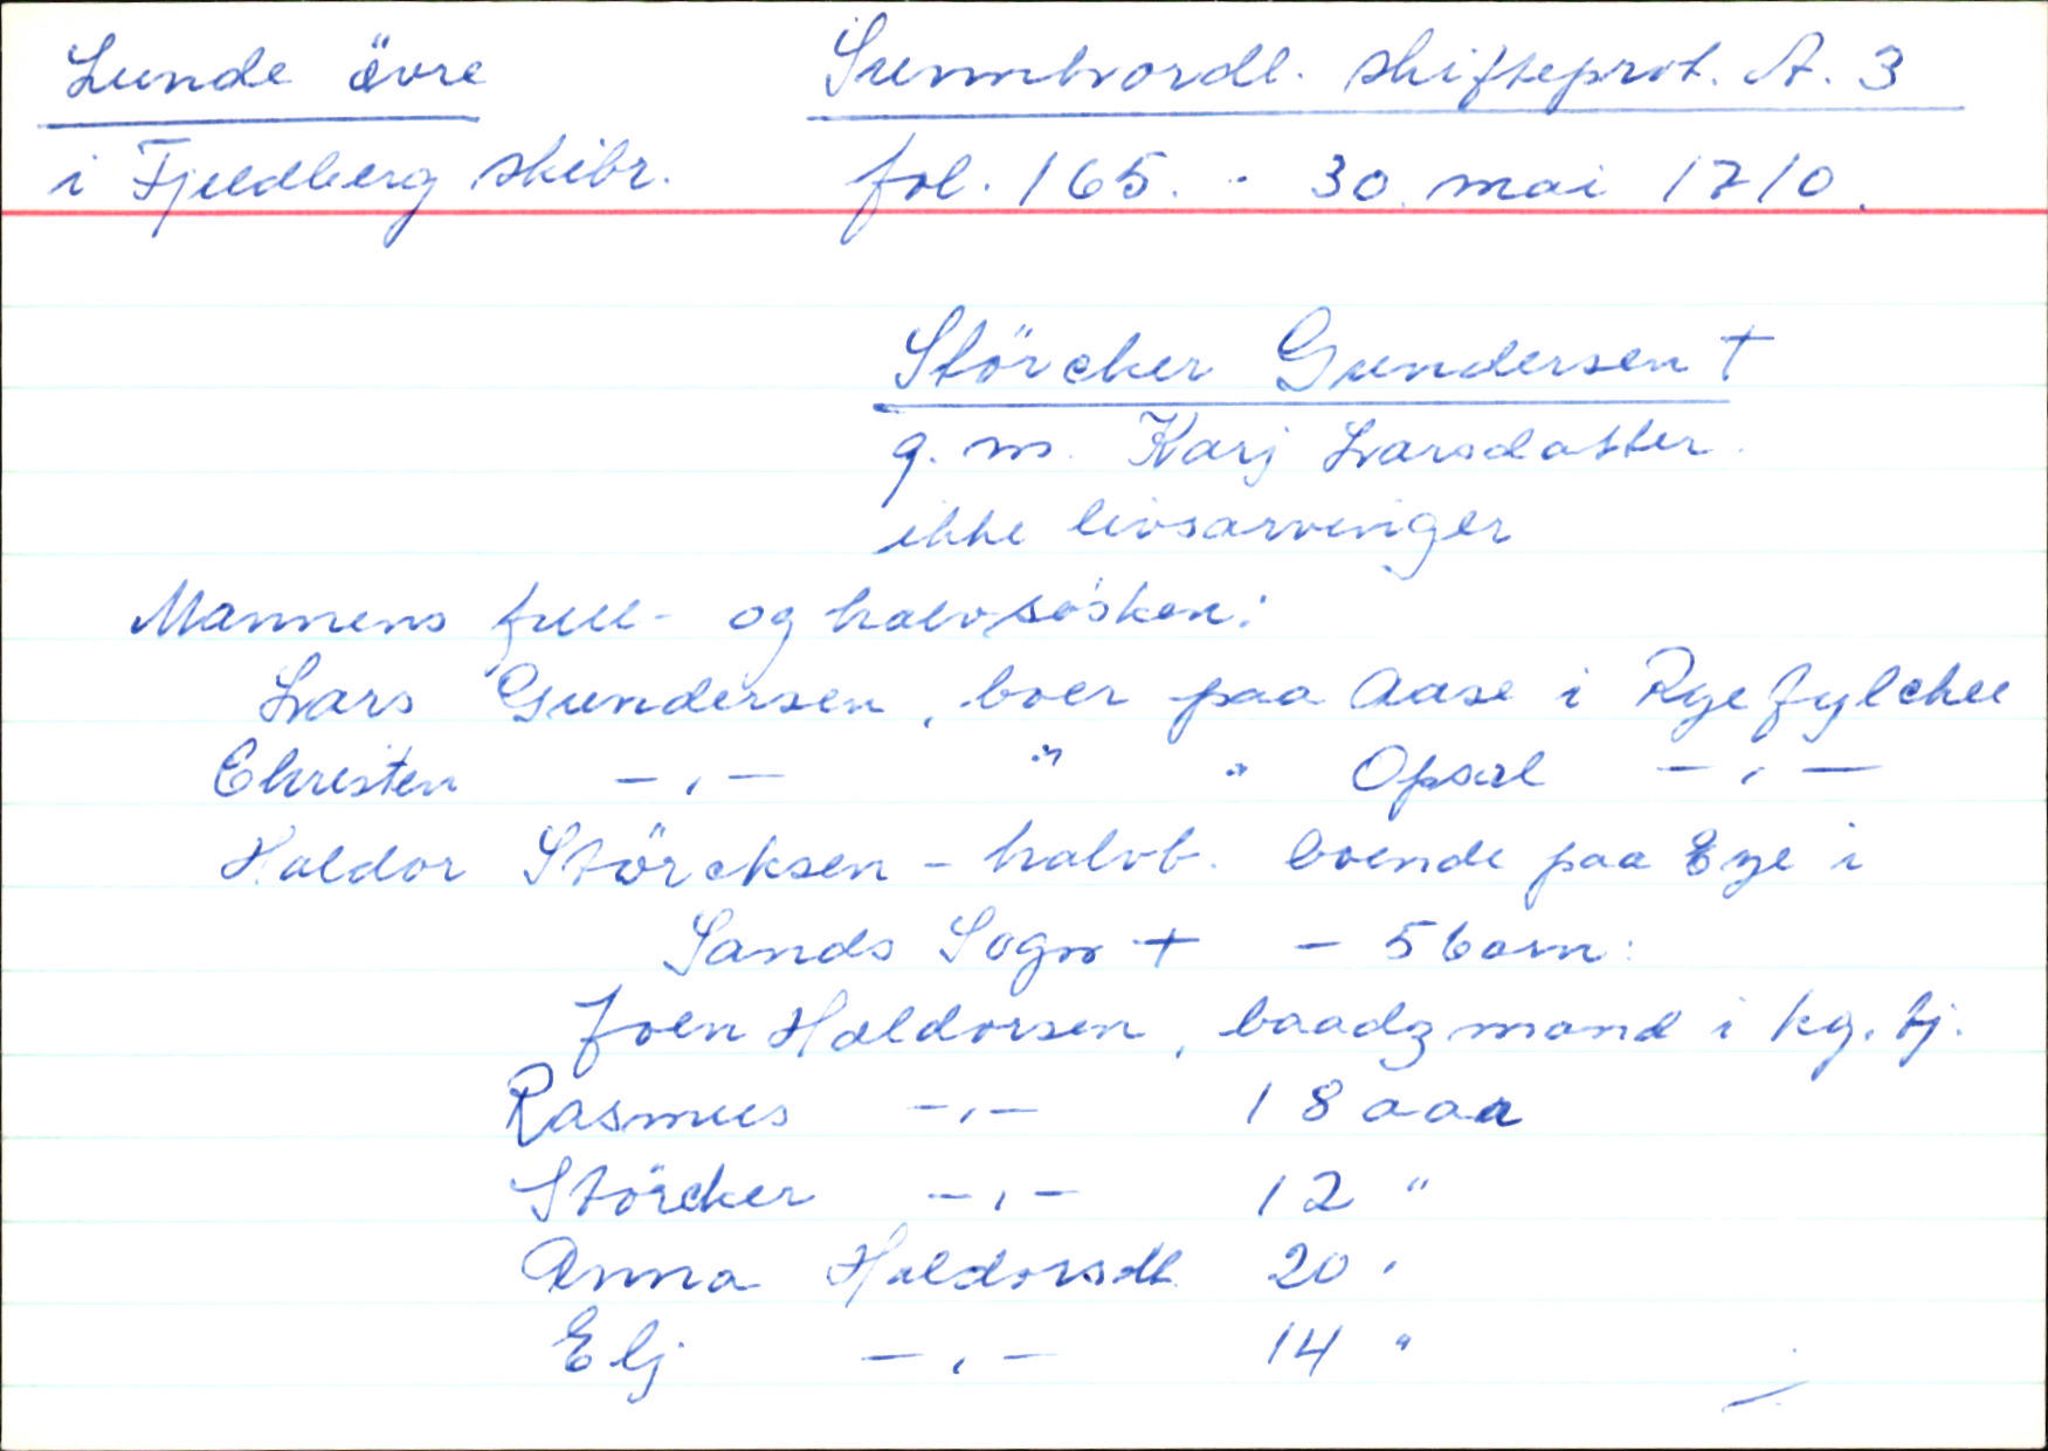 Lunde övre Sunnhordl. skifteprot. A. 3
i Fjeldberg skibr. fol. 165. - 30. mai 1710.
Störcker Gundersen +
g. m. Karj Larsdatter.
ikke livsarvinger
Mannens full- og halvsösken:
Lars Gundersen, boer paa Aase i Ryefylckee
Christen -,- " " Opsal -,-
Haldor Störcksen - halvb. boende paa Eye i
Sands Sogn + - 5 born:
Joen Haldorsen, baadzmand i kg. tj.
Rasmus -,- 18 aar
Störcker -,- 12 "
Anna Haldorsdt. 20 "
Elj -,- 14 "